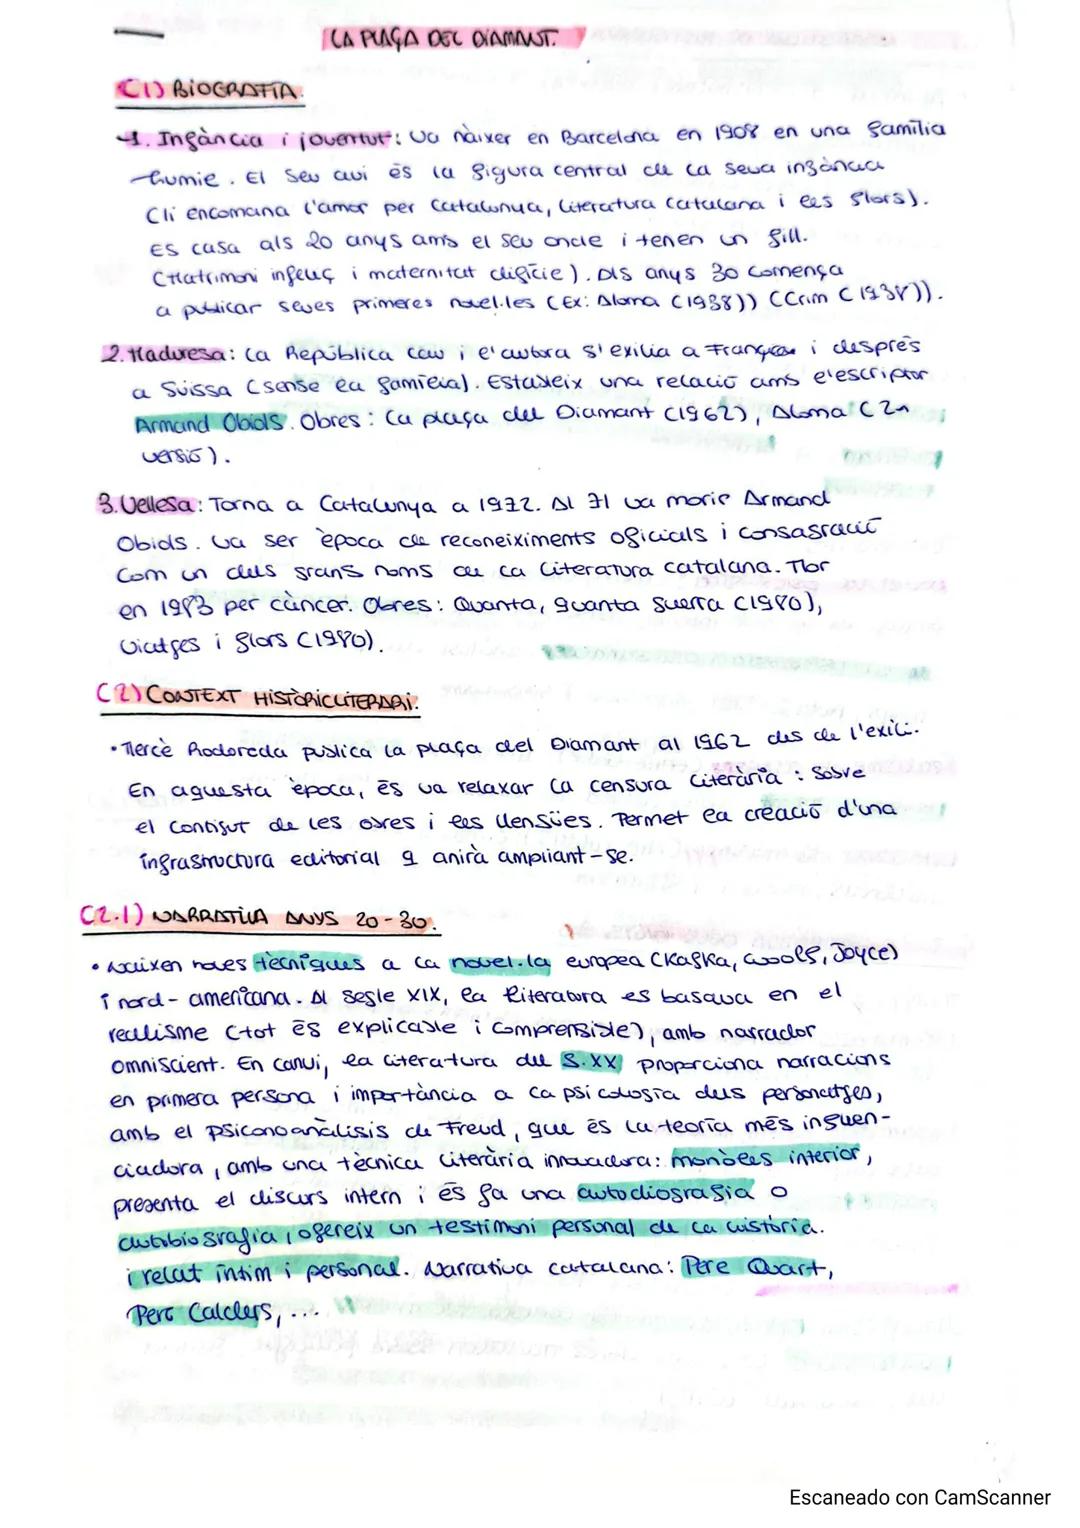 LA PLAÇA DEL DIAMANT.
C1) BIOGRAFIA.
1. Infància i joventut: Va nàixer en Barcelona en 1908 en una família
humil. El seu avi és la figura central de la seua infància
(li encomana l'amor per Catalunya, literatura catalana i les flors).
Es casa als 20 anys amb el seu oncle i tenen un fill.
(Matrimoni infeliç i maternitat difícil). Als anys 30 comença
a publicar seves primeres novel·les (Ex: Aloma (1938)) (Crim (1938)).
2. Maduresa: La República cau i l'autora s'exilia a França i després
a Suïssa (sense la família). Estableix una relació amb l'escriptor
Armand Obiols. Obres: La plaça del Diamant (1962), Aloma (2n
versió).
3. Vellesa: Torna a Catalunya a 1972. Al 71 va morir Armand
Obiols. Va ser època de reconeiximents oficials i consagració
com un dels grans noms de la literatura catalana. Mor
en 1983 per càncer. Obres: Quanta, quanta guerra (1980),
Viatges i flors (1980).
C2) CONTEXT HISTÒRICLITERARI.
• Mercè Rodoreda publica La plaça del Diamant al 1962 des de l'exili.
En aquesta època, és va relaxar la censura literària: sobre
el contigut de les obres i les llengües. Permet la creació d'una
infrastructura editorial q anirà ampliant-se.
C2.1) NARRATIVA ANYS 20-30.
• Naixen noves tècniques a la novel·la europea (Kafka, Woolf, Joyce)
i nord-americana. Al segle XIX, la literatura es basava en el
realisme (tot és explicable i comprensible), amb narrador
omniscient. En canvi, la literatura del S.XX proporciona narracions
en primera persona i importància a la psicologia dels personatges,
amb el psiconoanàlisis de Freud, que és la teoria més influen-
ciadora, amb una tècnica literària innovadora: monòleg interior,
presenta el discurs intern i és fa una autodiografia o
autobiografia, ofereix un testimoni personal de la història.
i relat íntim i personal. Narrativa catalana: Pere Quart,
Pere Calders, ...
Escaneado con CamScanner